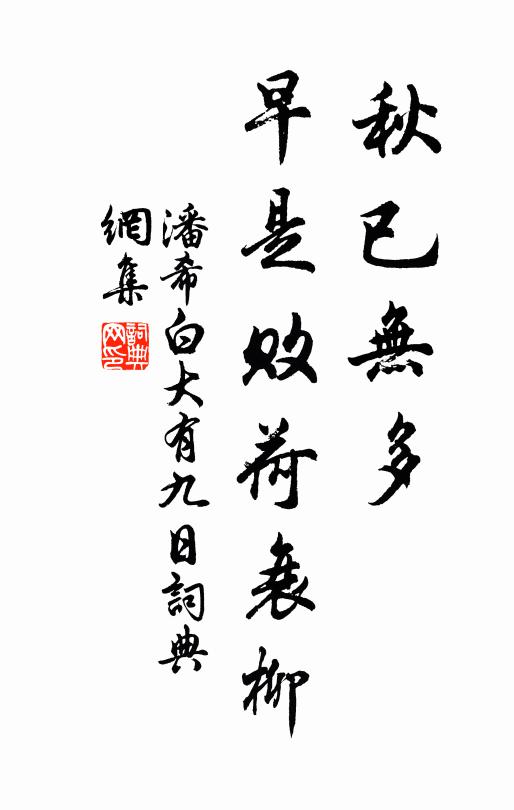 秋已無多
早是敗荷衰柳
潘希白大有九日詞典
網集
詞典
网印